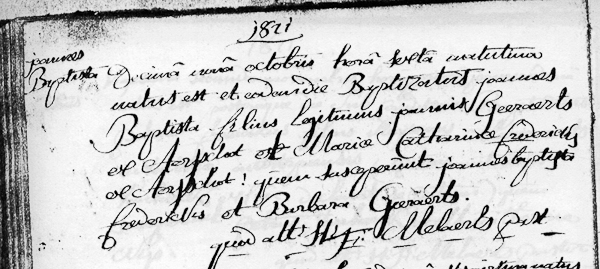 1821
joannes
Baptista
Decimâ nonâ octobris horâ sextâ matutina
natus est et eadem die Baptizatus joannes
Baptista filius legitimus joannis Geeraerts
ex Aerschot et Mariæ Catharinæ Frederickx
ex Aerschot: quem susceperunt joannes baptista
Frederickx et Barbara Geeraerts.
quod att: